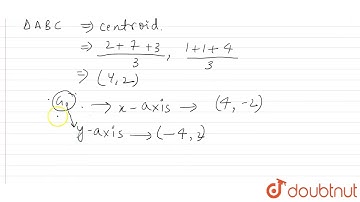 Δ ABC ⇒ centroid.
⇒ 2+7+3/3, 1+1+4/3
⇒ (4,2)
G, → x-axis → (4,-2)
y-axis → (-4,2)
doubtnut